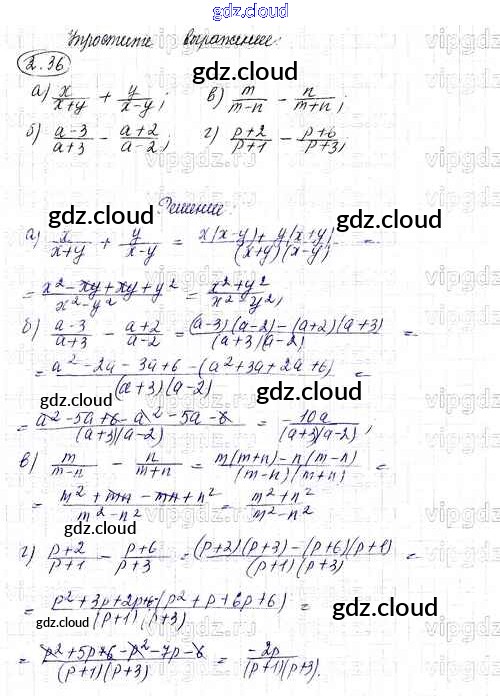 gdz.cloud
Упростите выражение:
2.36
gdz.cloud gdz.cloud
а) x/(x+y) + y/(x-y); в) m/(m-n) - n/(m+n);
б) (a-3)/(a+3) - (a+2)/(a-2); г) (p+2)/(p+1) - (p+6)/(p+3);
Решение:
gdz.cloud gdz.cloud
а) x/(x+y) + y/(x-y) = (x(x-y)+y(x+y))/((x+y)(x-y)) =
= (x²-xy+xy+y²)/(x²-y²) = (x²+y²)/(x²-y²);
б) (a-3)/(a+3) - (a+2)/(a-2) = ((a-3)(a-2)-(a+2)(a+3))/((a+3)(a-2)) =
= (a²-2a-3a+6-(a²+3a+2a+6))/((a+3)(a-2)) =
gdz.cloud gdz.cloud
= (a²-5a+6-a²-5a-6)/((a+3)(a-2)) = -10a/((a+3)(a-2));
в) m/(m-n) - n/(m+n) = (m(m+n)-n(m-n))/((m-n)(m+n)) =
= (m²+mn-mn+n²)/(m²-n²) = (m²+n²)/(m²-n²)
gdz.cloud gdz.cloud
г) (p+2)/(p+1) - (p+6)/(p+3) = ((p+2)(p+3)-(p+6)(p+1))/((p+1)(p+3)) =
= (p²+3p+2p+6-(p²+p+6p+6))/((p+1)(p+3)) =
gdz.cloud gdz.cloud
= (p²+5p+6-p²-7p-6)/((p+1)(p+3)) = -2p/((p+1)(p+3)).
gdz.cloud